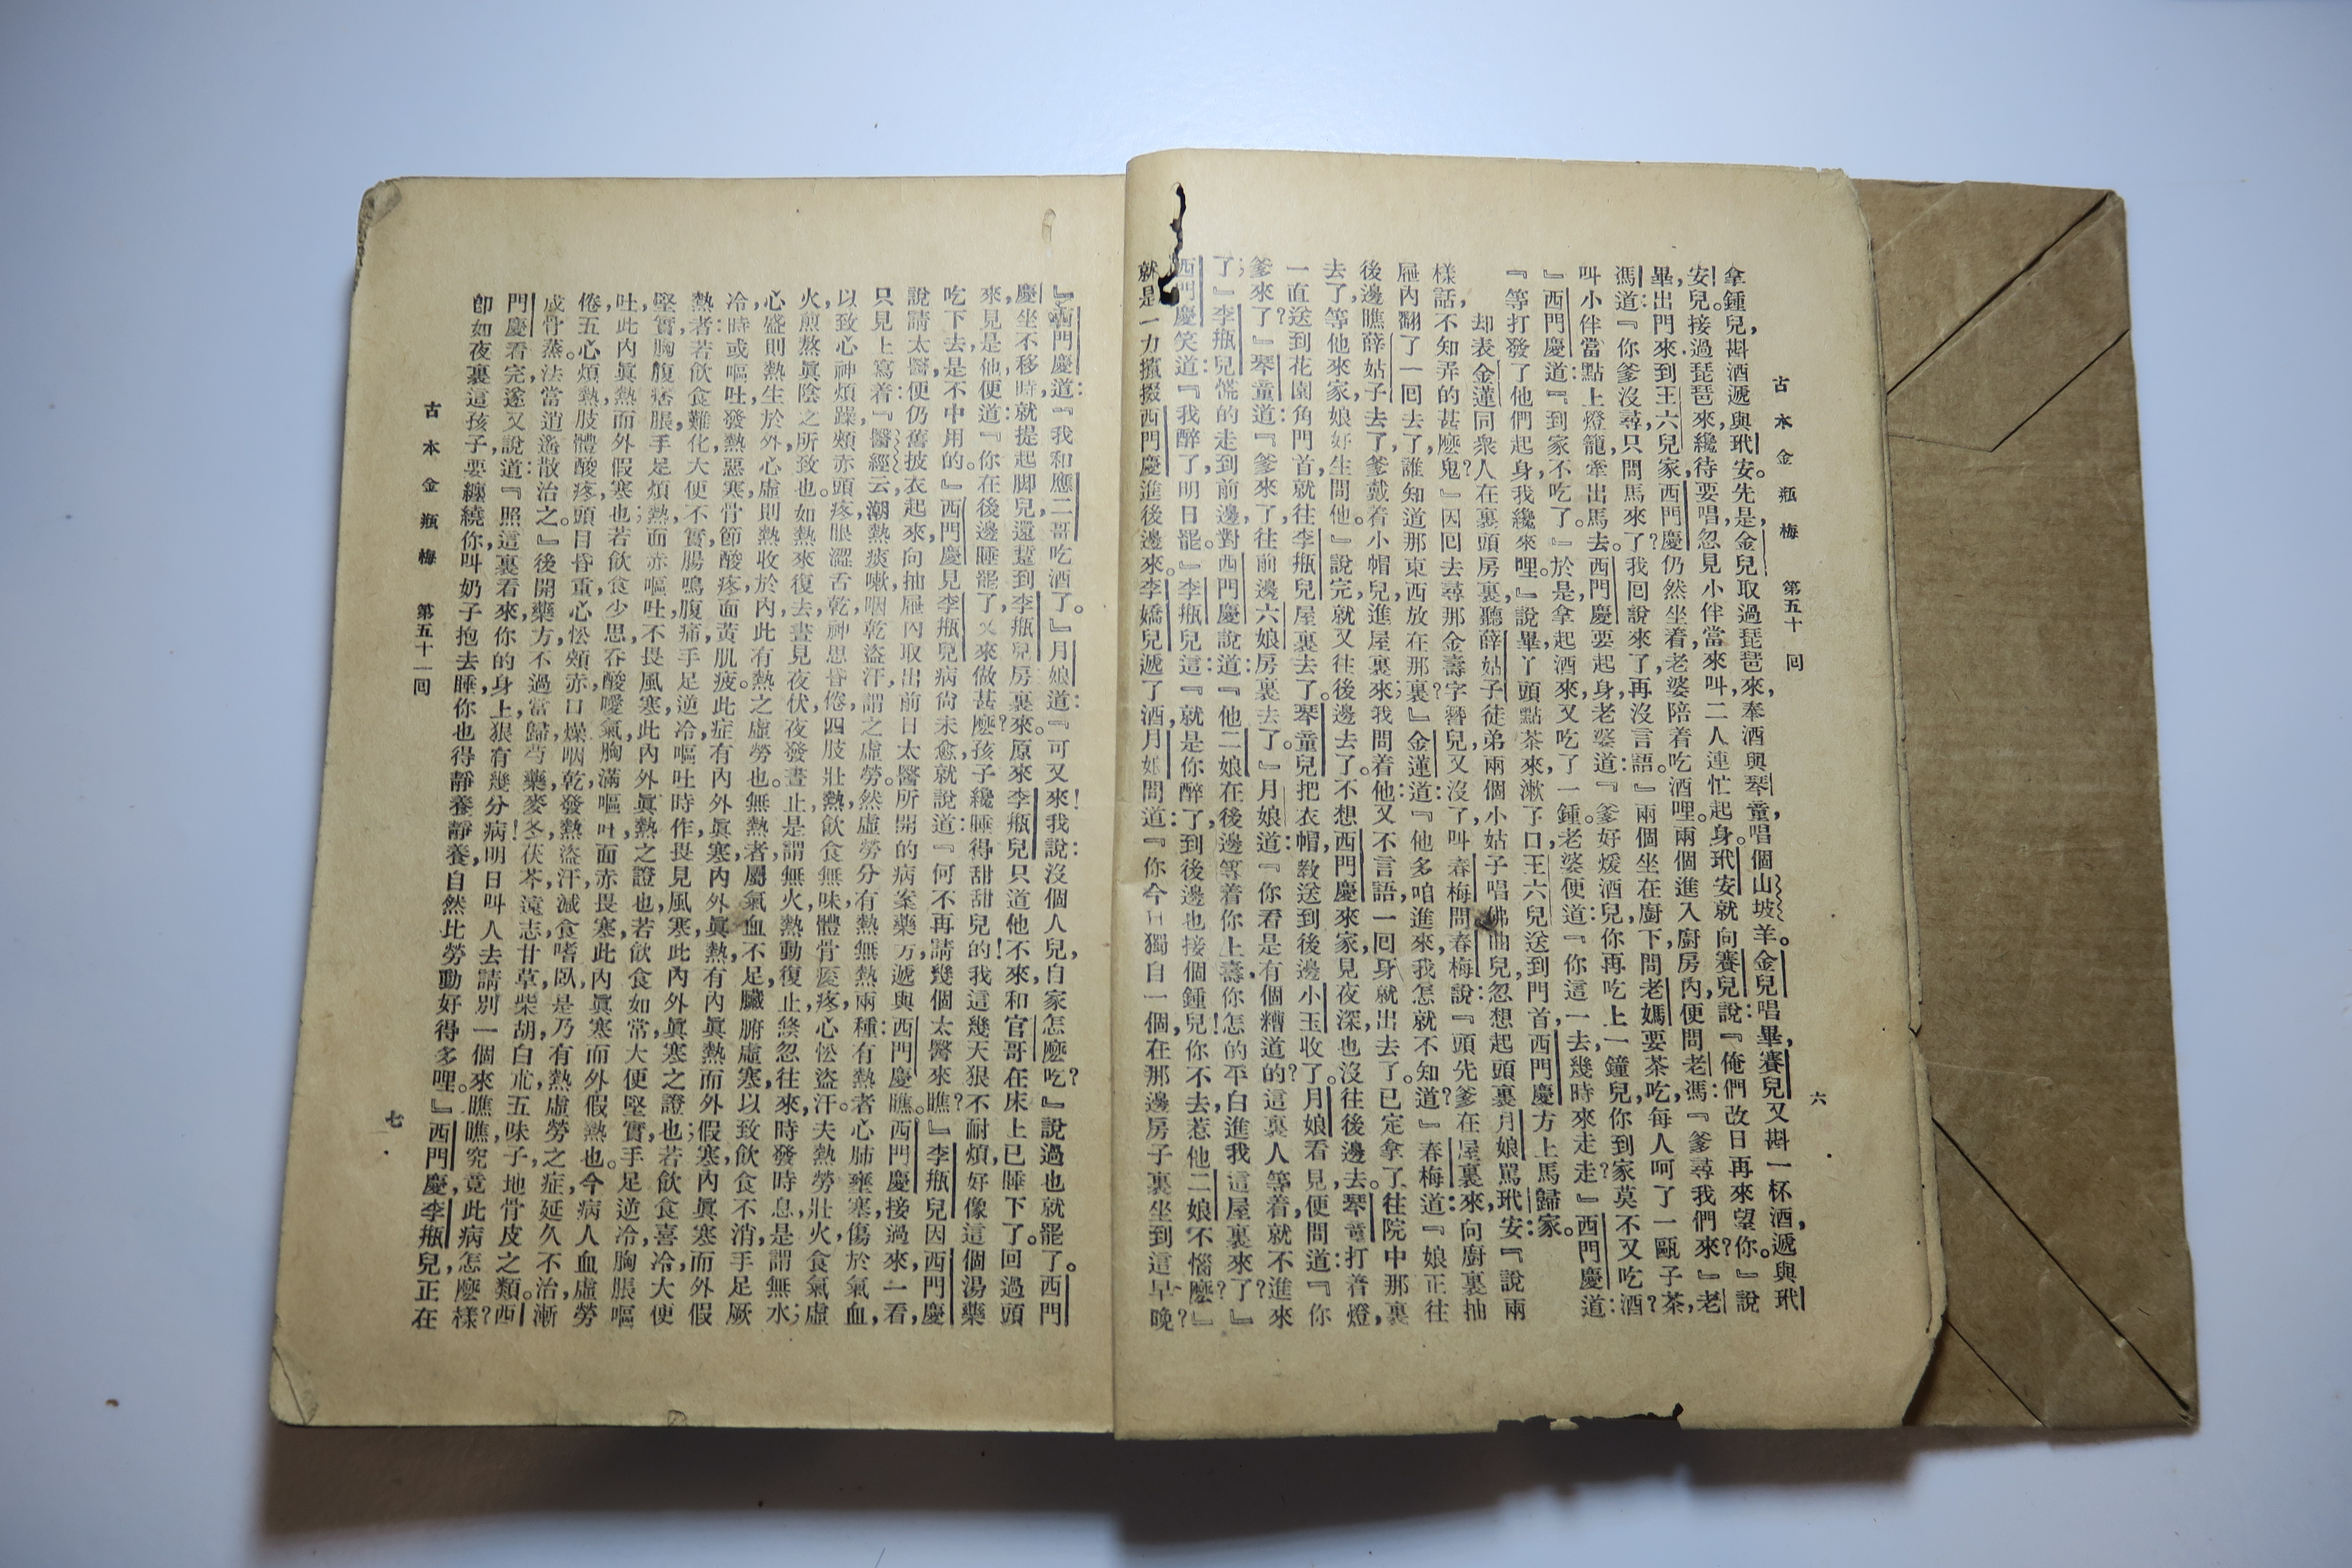 古本金瓶梅 第五十回 六
拿鍾兒，斟酒遞與玳安。先是，金兒取過琵琶來，奉酒與琴童，唱個山坡羊。金兒唱畢，賽兒又斟一杯酒，遞與玳
安兒。接過琵琶來，纔待要唱，忽見小伴當來叫，二人連忙起身。玳安就向賽兒說：『俺們改日再來望你。』說
畢，出門來到王六兒家，西門慶仍然坐着，老婆陪着吃酒哩。兩個進入廚房內，便問老馮：『爹尋我們來？』老
馮道：『你爹沒尋，只問馬來了？我回說來了，再沒言語。』兩個坐在廚下，問老媽要茶吃，每人呵了一甌子茶，
叫小伴當點上燈籠，牽出馬去。西門慶要起身，老婆道：『爹好煖酒兒，你再吃上一鐘兒，你到家莫不又吃酒？
』西門慶道：『到家不吃了。』於是拿起酒來，又吃了一鍾。老婆便道：『你這一去，幾時來走走？』西門慶道：
『等打發了他們起身，我纔來哩。』說畢，丫頭點茶來漱了口，王六兒送到門首，西門慶方上馬歸家。
却表金蓮同衆人在裏頭房裏，聽薛姑子徒弟兩個小姑子唱佛曲兒，忽想起頭裏月娘罵玳安：『說兩
樣話，不知弄的甚麽鬼？』因回去尋那金壽字簪兒，又沒了，叫春梅問。春梅說：『頭先爹在屋裏來，向廚裏抽
屜內翻了一回去了，誰知道那東西放在那裏？』金蓮道：『他多咱進來，我怎就不知道？』春梅道：『娘正往
後邊瞧薛姑子去了，爹戴着小帽兒，進屋裏來；我問着他，又不言語，一回身就出去了。已定拿了，往院中那裏
去了，等他來家，娘好生問他。』說完，就又往後邊去了。不想西門慶來家，見夜深，也沒往後邊去。琴童打着燈，
一直送到花園角門首，就往李瓶兒屋裏去了。琴童兒把衣帽，敎送到後邊，小玉收了。月娘看見，便問道：『你
爹來了？』琴童道：『爹來了，往前邊六娘房裏去了。』月娘道：『你看是有個糟道的？這裏人等着，就不進來
了；』李瓶兒慌的走到前邊，對西門慶說道：『他二娘在後邊等着你上壽，你怎的平白進我這屋裏來了？』
西門慶笑道：『我醉了，明日罷。』李瓶兒這：『就是你醉了，到後邊也接個鍾兒！你不去，惹他二娘不惱麽？』
就是一力攛掇西門慶進後邊來。李嬌兒遞了酒，月娘問道：『你今日獨自一個，在那邊房子裏坐到這早晚？
』西門慶道：『我和應二哥吃酒了。』月娘道：『可又來！我說：沒個人兒，自家怎麽吃？』說過也就罷了。西門
慶坐不移時，就提起脚兒，還踅到李瓶兒房裏來。原來李瓶兒只道他不來，和官哥在床上已睡下了。回過頭
來，見是他，便道：『你在後邊睡罷了，又來做甚麽？孩子纔睡得甜甜兒的！我這幾天狠不耐煩，好像這個湯藥
吃下去，是不中用的。』西門慶見李瓶兒病尙未愈，就說道：『何不再請幾個太醫來瞧？』李瓶兒因西門慶
說請太醫，便仍舊披衣起來，向抽屜內取出前日太醫所開的病案藥方，遞與西門慶瞧。西門慶接過來，一看，
只見上寫着：『醫經云，潮熱痰嗽，咽乾盜汗，謂之虛勞。然虛勞分有熱無熱兩種：有熱者心肺壅塞，傷於氣血，
以致心神煩躁，頰赤頭疼，眼澀舌乾，神思昏倦，四肢壯熱，飲食無味，體骨痠疼，心忪盜汗。夫熱勞壯火，食氣虛
火，煎熬眞陰之所致也。如熱來復去，晝見夜伏，夜發晝止，是謂無火，熱動復止，倏忽往來，時發時息，是謂無水；
心盛則熱生於外，心虛則熱收於內，此有熱之虛勞也。無熱者，屬氣血不足，臟腑虛寒，以致飲食不消，手足厥
冷，時或嘔吐，發熱惡寒，骨節酸疼，面黃肌疲。此症有內外眞寒，內外眞熱，有內眞熱而外假寒，內眞寒而外假
熱：者若飲食難化，大便不實，腸鳴腹痛，手足逆冷，嘔吐時作，畏見風寒，此內外眞寒之證也；若飲食喜冷，大便
堅實，胸腹痞脹，手足煩熱，面赤嘔吐，不畏風寒，此內外眞熱之證也，若飲食如常，大便堅實，手足逆冷，胸脹嘔
吐，此內眞熱而外假寒也；若飲食少思，吞酸噯氣，胸滿嘔吐，面赤畏寒，此內眞寒而外假熱也。今病人血虛勞
倦，五心煩熱，肢體酸疼，頭目昏重，心忪頰赤，口燥咽乾，發熱盜汗，減食嗜臥，是乃有熱虛勞之症，延久不治，漸
成骨蒸。法當逍遙散治之。』後開藥方，不過當歸芍藥，麥冬茯苓，遠志甘草，柴胡白朮，五味子，地骨皮之類。西
門慶看完，遂又說道：『照這裏看來，你的身上，狠有幾分病！明日叫人去請別一個來瞧瞧，究竟此病怎麽樣？
卽如夜裏這孩子，要纏繞你，叫奶子抱去睡，你也得靜養靜養，自然比勞動好得多哩。』西門慶，李瓶兒，正在
古本金瓶梅 第五十一回 七